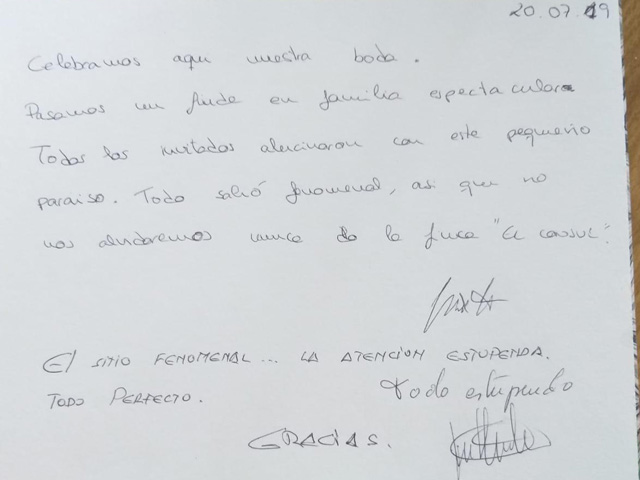 20.07.19
Celebramos aqui nuestra boda.
Pasamos un finde en familia espectacular
Todos los invitados alucinaron con este pequeño
paraiso. Todo salió fenomenal, asi que no
nos olvidaremos nunca de la finca "El Consul".
El SITIO FENOMENAL... LA ATENCION ESTUPENDA.
TODO PERFECTO.
todo estupendo
GRACIAS.